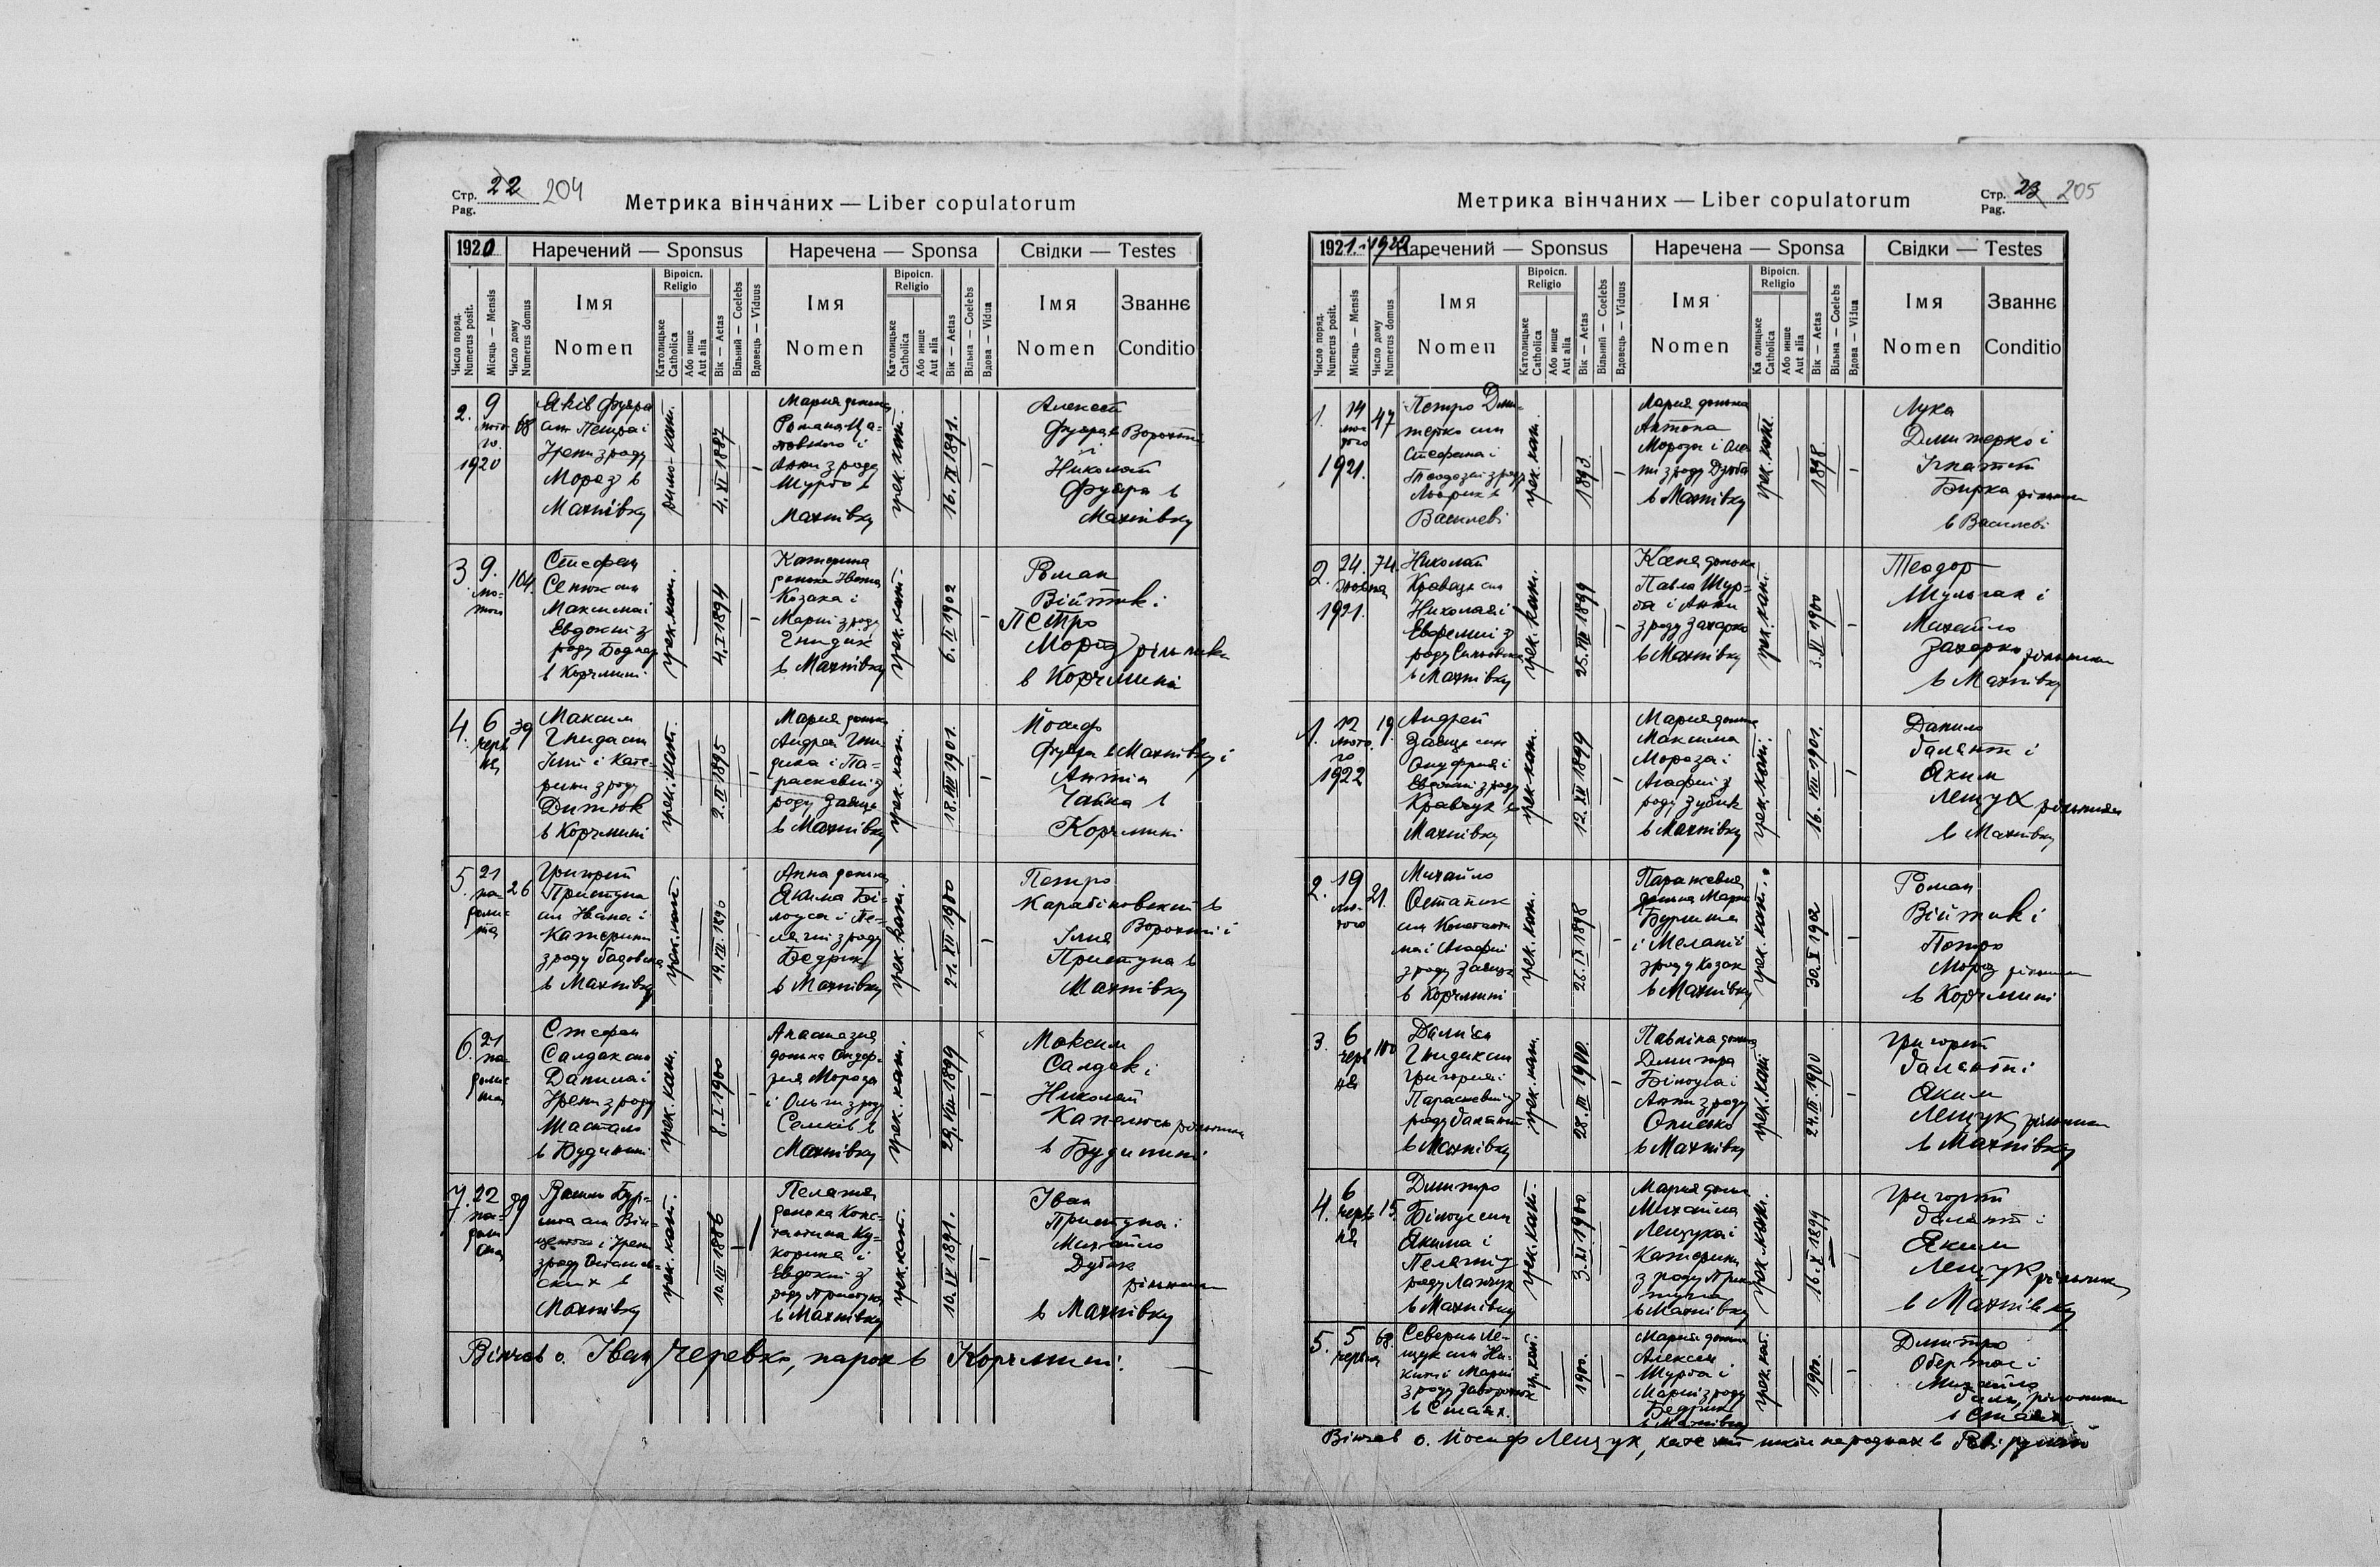 Стр. 22 204
Pag.
Метрика вінчаних — Liber copulatorum
1920 Наречений — Sponsus Наречена — Sponsa Свідки — Testes
Число поряд. Numerus posit.
Місяць — Mensis
Число дому Numerus domus
Імя Nomen
Віроісп. Religio
Католицьке Catholica
Або инше Aut alia
Вік — Aetas
Вільний — Coelebs
Вдовець — Viduus
Імя Nomen
Віроісп. Religio
Католицьке Catholica
Або инше Aut alia
Вік — Aetas
Вільна — Coelebs
Вдова — Vidua
Імя Nomen
Званнє Conditio
2. 9 1920
68
син Петра і
Ірени з роду
Мороз в
Махнівку
4. XI 1887
Мария донька
Романа
Анни з роду
Шурго в
Махнівку
грек. кат.
16. IV 1891.
Алексей
Николай
в
Махнівку
3. 9. лютого
104.
Стефан
син
Максима і
Евдокиї з
роду Боднар
в Корчмині
грек. кат.
4. I 1894
Катерина
донька Ивана
Козака і
Мариї з роду
Гнидик
в Махнівку
грек. кат.
6. II 1902
Роман
Війтик і
Петро
Мороз рільники
в Корчмині
4. 6 червня
39
Максим
Гнида син
Ілиї і Кате-
рини з роду
Дитюк
в Корчмині
грек. кат.
2. II 1895
Мария донька
Андрея Гни-
дика і Па-
раскевиї з
роду Заяць
в Махнівку
грек. кат.
18. VIII 1901.
Йосиф
в Махнівку і
Антін
Чайка в
Корчмині
5. 21 падолиста
26
Григорий
Приступа
син Ивана і
Катерини
з роду
в Махнівку
грек. кат.
19. III. 1896
Анна донька
Якима Бі-
лоуса і Пе-
лагиї з роду
Бедрик
в Махнівку
грек. кат.
21. XII 1900
Петро
в
і
Ілия
Приступа в
Махнівку
6. 21 падолиста
Стефан
Салдак син
Данила і
Ірени з роду
Шастало
в Будинині
грек. кат.
8. I 1900
Анастазия
донька
Мороза
і Ольги з роду
Семків в
Махнівку
грек. кат.
29. VIII 1899
Максим
Салдак і
Николай
Капелюсь рільники
в Будинині
7. 22 падолиста
89
син Він-
і Ірени
з роду
в
Махнівку
грек. кат.
10. III 1886
Пелагия
донька Конс-
тантина Ку-
і
Евдокиї з
роду Приступа
в Махнівку
грек. кат.
10. IV 1891.
Іван
Приступа і
Михайло
Дубик
рільники
в Махнівку
Вінчав о. Іван Черевко, парох в Корчмині.
Стр. 23 205
Pag.
Метрика вінчаних — Liber copulatorum
1921.-1922 Наречений — Sponsus Наречена — Sponsa Свідки — Testes
Число поряд. Numerus posit.
Місяць — Mensis
Число дому Numerus domus
Імя Nomen
Віроісп. Religio
Католицьке Catholica
Або инше Aut alia
Вік — Aetas
Вільний — Coelebs
Вдовець — Viduus
Імя Nomen
Віроісп. Religio
Ка олицьке Catholica
Або инше Aut alia
Вік — Aetas
Вільна — Coelebs
Вдова — Vidua
Імя Nomen
Званнє Conditio
1. 14 лютого 1921.
47
Петро Дми-
терко син
Стефана і
Теодозиї з роду
в
Василеві
грек. кат.
1893
Мария донька
Антона
Мороза і Оле-
ни з роду Дзюба
в Махнівку
грек. кат.
1898.
Лука
Дмитерко і
Ігнатий
Бирка рільники
в Василеві
2. 24. жовтня 1921.
74.
Николай
Кравець син
Николая і
Евфемиї з
роду
в Махнівку
грек. кат.
25. VII 1899
донька
Павла Шур-
га і Анни
з роду Захарко
в Махнівку
грек. кат.
3. VI 1900
Теодор
Мульган і
Михайло
Захарко рільники
в Махнівку
1. 12 лютого 1922
19.
Андрей
Заяць син
Онуфрия і
Евдокиї з роду
Кравчук в
Махнівку
грек. кат.
12. XII 1899
Мария донька
Максима
Мороза і
Агафиї з
роду Зубик
в Махнівку
грек. кат.
16. VIII 1901.
Данило
Галянт і
Яким
Лещук рільники
в Махнівку
2. 19 лютого
21.
Михайло
Остапюк
син Константи
на і Агафиї
з роду Заяць
в Корчмині
грек. кат.
26. IX 1898
Параскевия
донька Марка
і Меланиї
з роду Козак
в Махнівку
грек. кат.
30. X 1902
Роман
Війтик і
Петро
Мороз рільники
в Корчмині
3. 6 червня
100
Дамян
Гнидик син
Григория і
Параскевиї з
роду Галянт
в Махнівку
грек. кат.
28. III 1900.
Павліна донька
Дмитра
Білоуса і
Анни з роду
Онисько
в Махнівку
грек. кат.
24. IV. 1900
Григорий
Галянт і
Яким
Лещук рільники
в Махнівку
4. 6 червня
15.
Дмитро
Білоус син
Якима і
Пелагиї з
роду
в Махнівку
грек. кат.
3. XI 1900
Мария донька
Михайла
Лещука і
Катерини
з роду При-
ступа
в Махнівку
грек. кат.
16. X 1899
Григорий
Галянт і
Яким
Лещук рільники
в Махнівку
5. 5 червня
68.
Северин Ле-
щук син Ни-
кити і Мариї
з роду
в Стаях.
гр. кат.
1900.
Мария донька
Алексея
Шурга і
Мариї з роду
Бедрик
в Махнівку
грек. кат.
1900.
Дмитро
і
Михайло
рільники
в Стаях
Вінчав о. Йосиф Лещук, катехит шкіл народних в Раві рускій